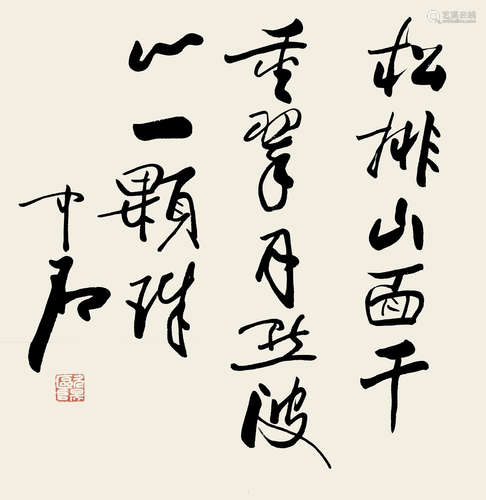 松排山面千
重翠月点波
心一颗珠
中石